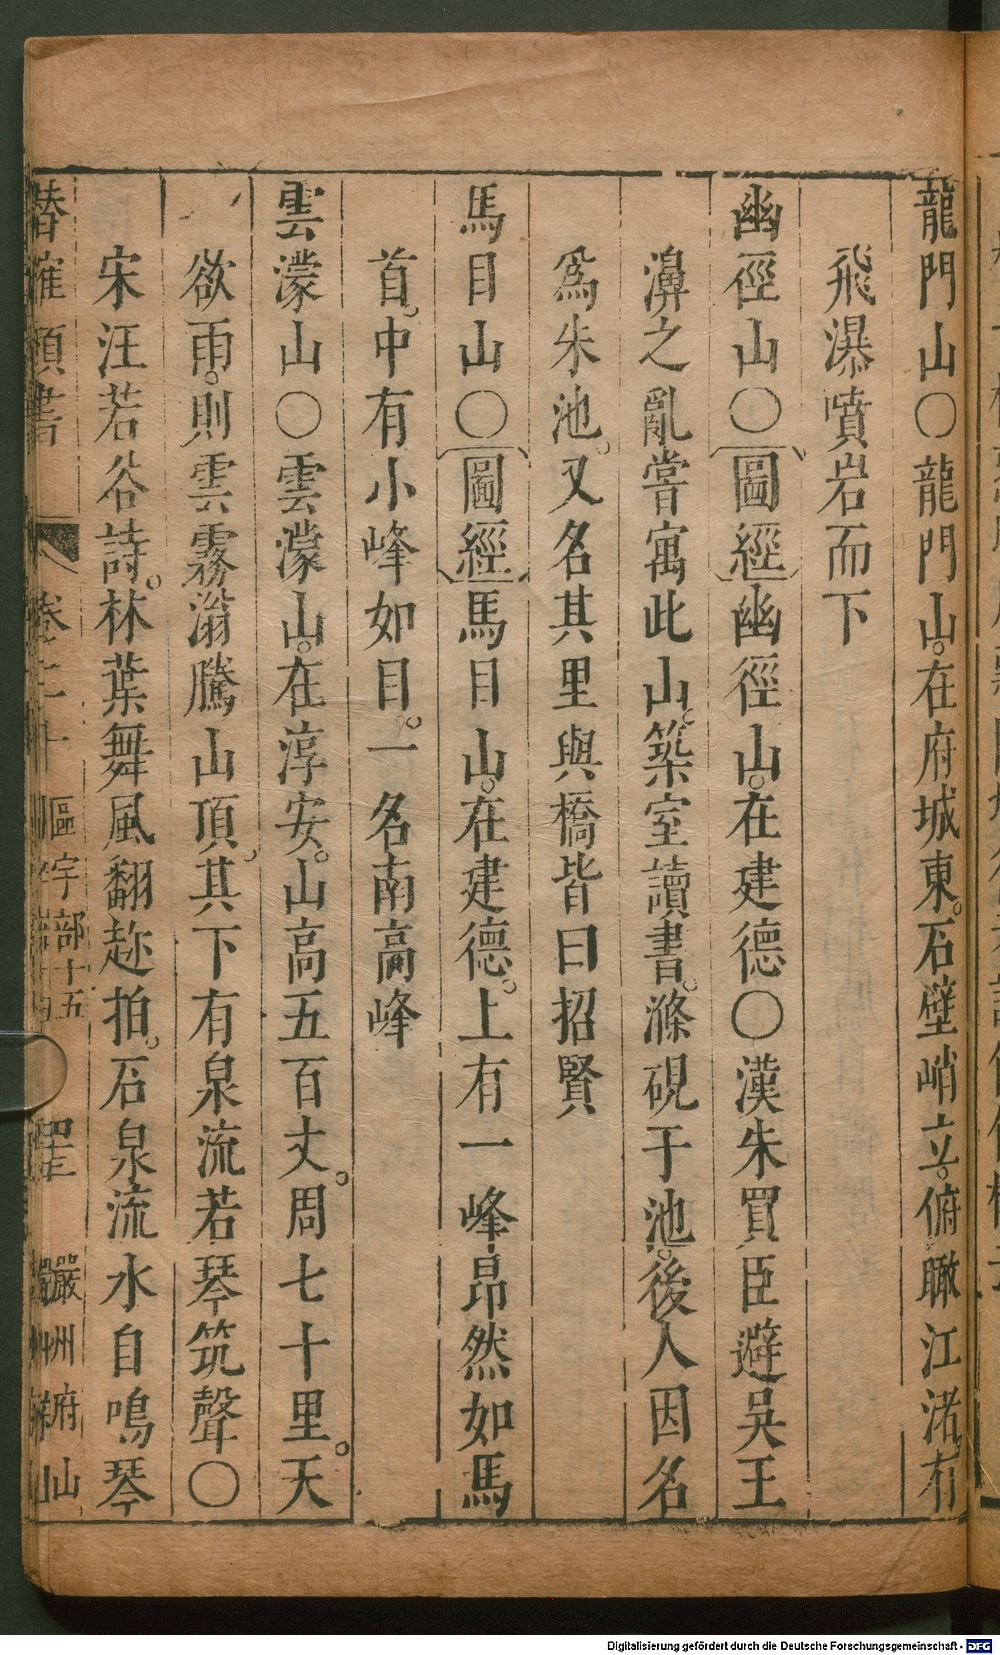 龍門山○龍門山。在府城東。石壁峭立。俯瞰江渚。有
飛瀑噴岩而下
幽徑山○圖經幽徑山。在建德○漢朱買臣避吳王
濞之亂嘗寓此山。築室讀書。滌硯于池。後人因名
爲朱池。又名其里與橋皆曰招賢
馬目山○圖經馬目山。在建德。上有一峰昂然如馬
首。中有小峰如目。一名南高峰
雲濛山○雲濛山。在淳安。山高五百丈。周七十里。天
欲雨。則雲霧滃騰山頂。其下有泉流若琴筑聲○
宋汪若谷詩。林葉舞風翻趂拍。石泉流水自鳴琴
頭書
區宇部十五
嚴州府山
Digitalisierung gefördert durch die Deutsche Forschungsgemeinschaft - DFG